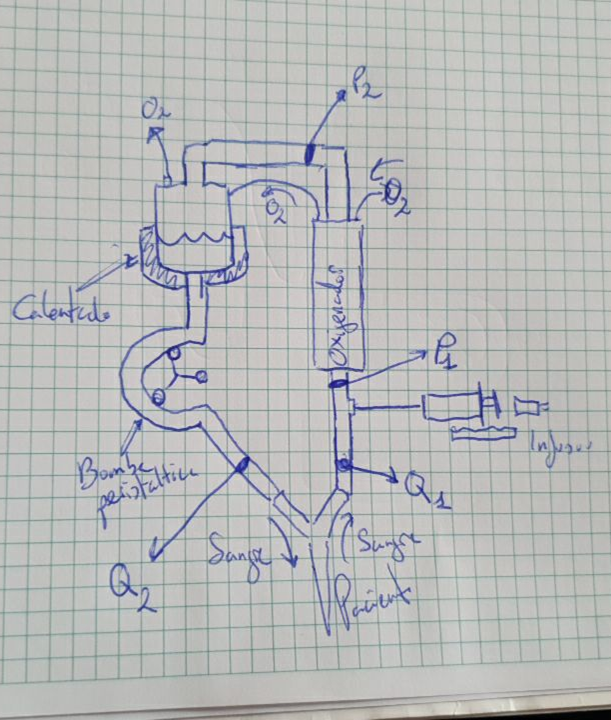 P2
O2
O2
O2
Calentado
Oxigenador
P1
Infusor
Bomba
peristaltica
Q1
Sangre
Sangre
Q2
Paciente